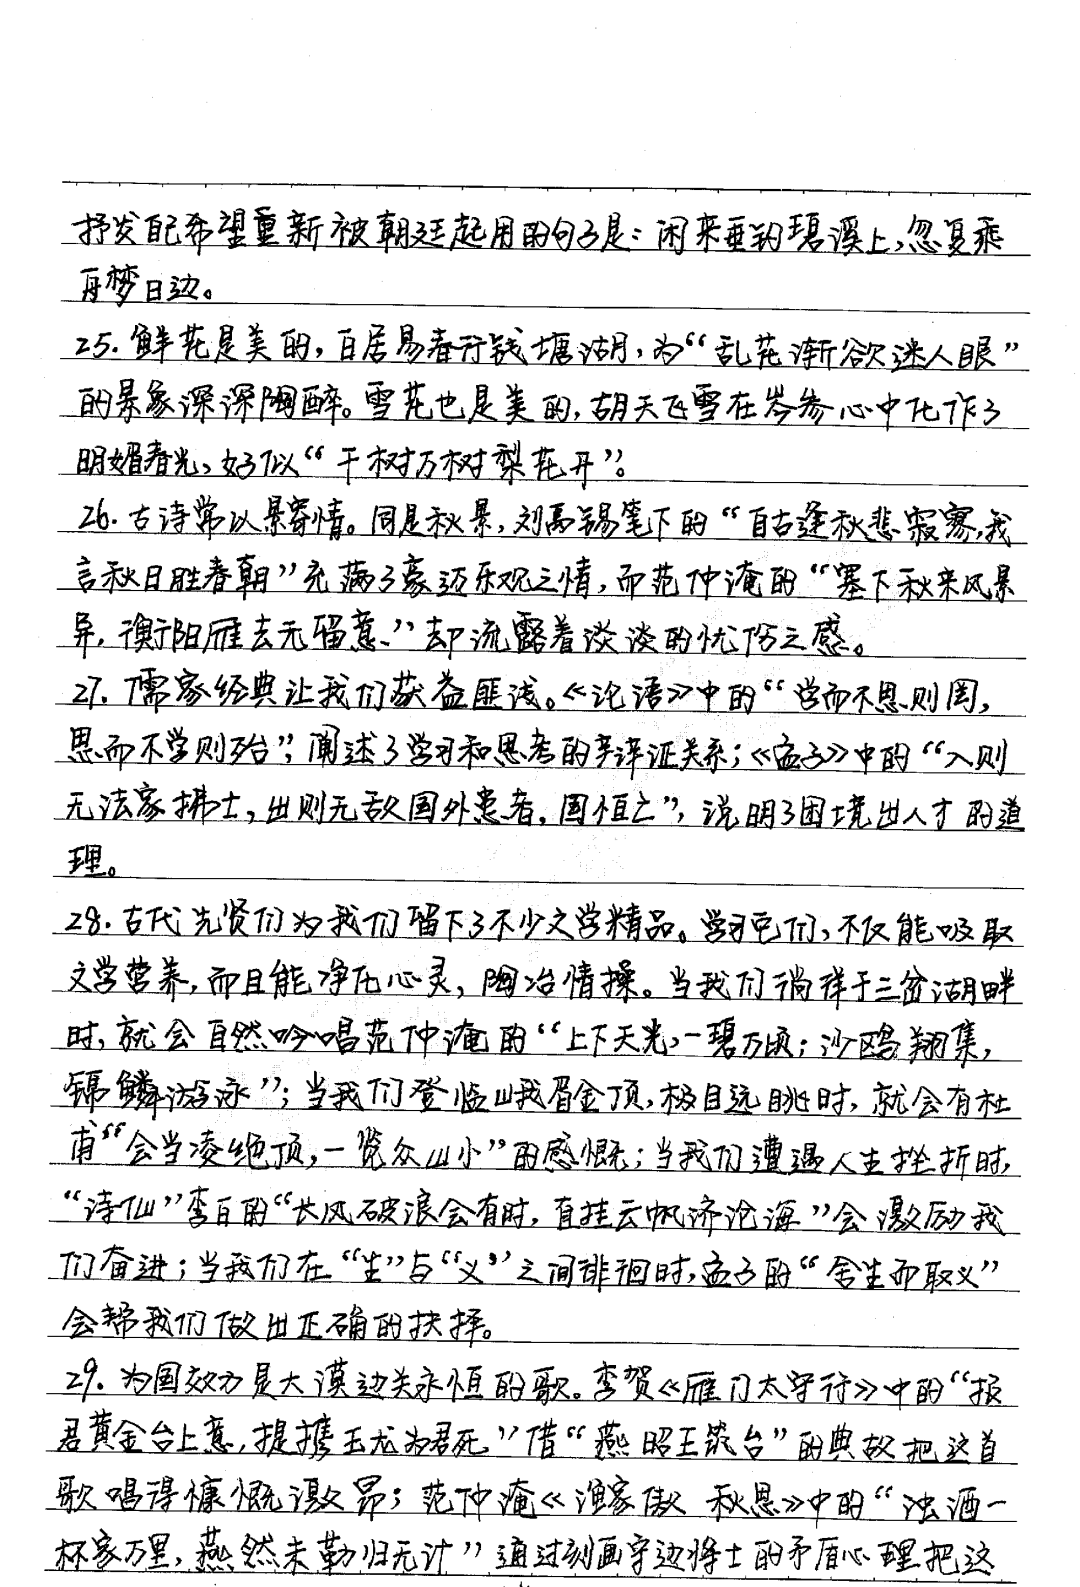 抒发自己希望重新被朝廷起用的句子是：闲来垂钓碧溪上，忽复乘
舟梦日边。
25. 鲜花是美的，白居易春行钱塘湖，为“乱花渐欲迷人眼”
的景象深深陶醉。雪花也是美的，胡天飞雪在岑参心中化作了
明媚春光，好似“千树万树梨花开”。
26. 古诗常以景寄情。同是秋景，刘禹锡笔下的“自古逢秋悲寂寥，我
言秋日胜春朝”充满了豪迈乐观之情，而范仲淹的“塞下秋来风景
异，衡阳雁去无留意”却流露着淡淡的忧伤之感。
27. 儒家经典让我们获益匪浅。《论语》中的“学而不思则罔，
思而不学则殆”，阐述了学习和思考的辩证关系；《孟子》中的“入则
无法家拂士，出则无敌国外患者，国恒亡”，说明了困境出人才的道
理。
28. 古代先贤们为我们留下了不少文学精品。学习它们，不仅能吸取
文学营养，而且能净化心灵，陶冶情操。当我们徜徉于三岔湖畔
时，就会自然吟唱范仲淹的“上下天光，一碧万顷；沙鸥翔集，
锦鳞游泳”；当我们登临峨眉金顶，极目远眺时，就会有杜
甫“会当凌绝顶，一览众山小”的感慨；当我们遭遇人生挫折时，
“诗仙”李白的“长风破浪会有时，直挂云帆济沧海”会激励我
们奋进；当我们在“生”与“义”之间徘徊时，孟子的“舍生而取义”
会帮我们做出正确的抉择。
29. 为国效力是大漠边关永恒的歌。李贺《雁门太守行》中的“报
君黄金台上意，提携玉龙为君死”借“燕昭王筑台”的典故把这首
歌唱得慷慨激昂；范仲淹《渔家傲 秋思》中的“浊酒一
杯家万里，燕然未勒归无计”通过刻画守边将士的矛盾心理把这